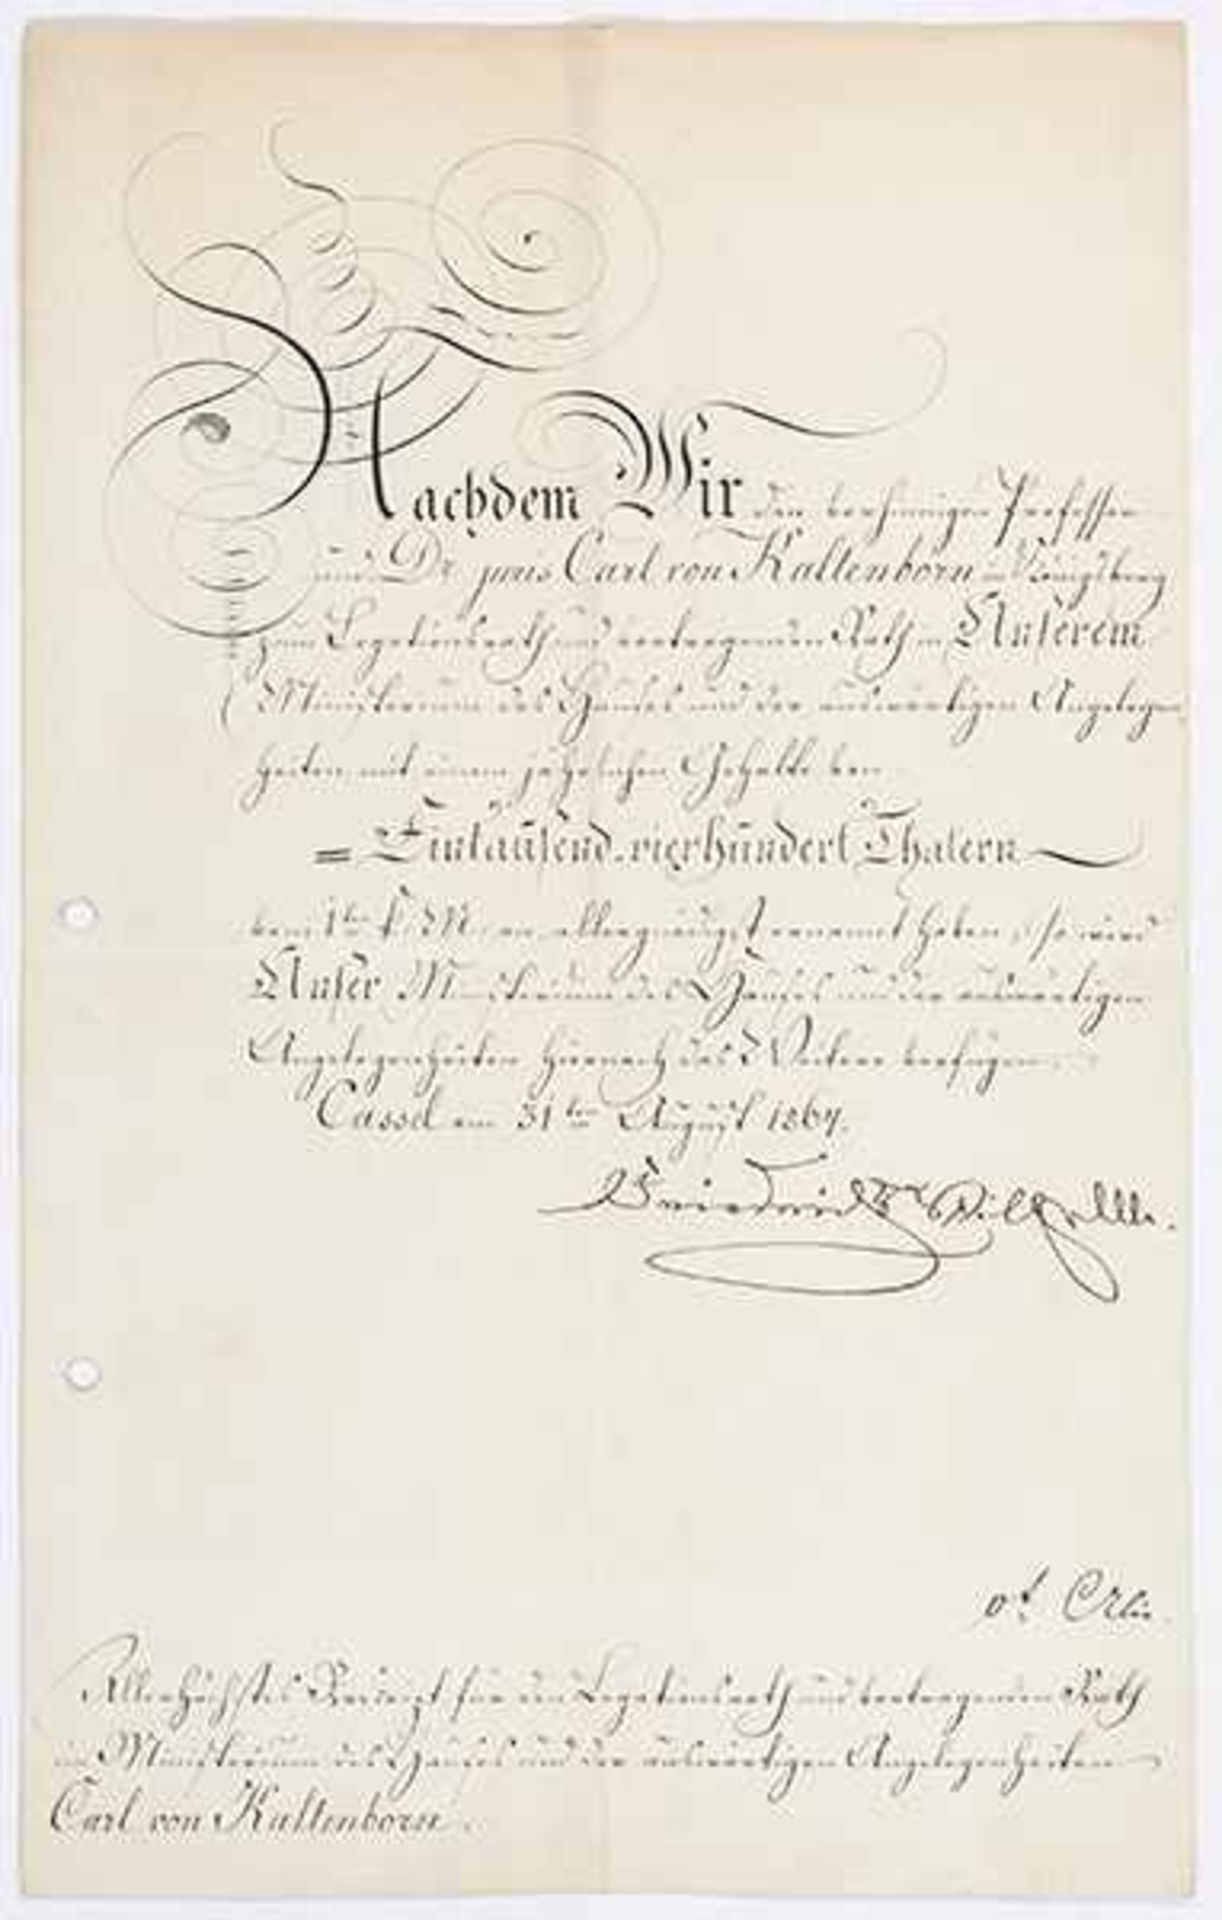 Nachdem Wir den bisherigen Professor
und Dr. juris Carl von Kaltenborn in Königsberg
zum Legationsrath und vortragenden Rath in Unserem
Ministerium des Hauses und der auswärtigen Angelegen
heiten mit einem jährlichen Gehalte von
= Eintausend vierhundert Thalern
vom 1ten k. M. an allergnädigst ernannt haben, so wird
Unser Ministerium des Hauses und der auswärtigen
Angelegenheiten hiernach das Weitere verfügen.
Cassel am 31ten August 1864.
Friedrich Wilhelm.
Allerhöchstes Rescript für den Legationsrath und vortragenden Rath
im Ministerium des Hauses und der auswärtigen Angelegenheiten
Carl von Kaltenborn.